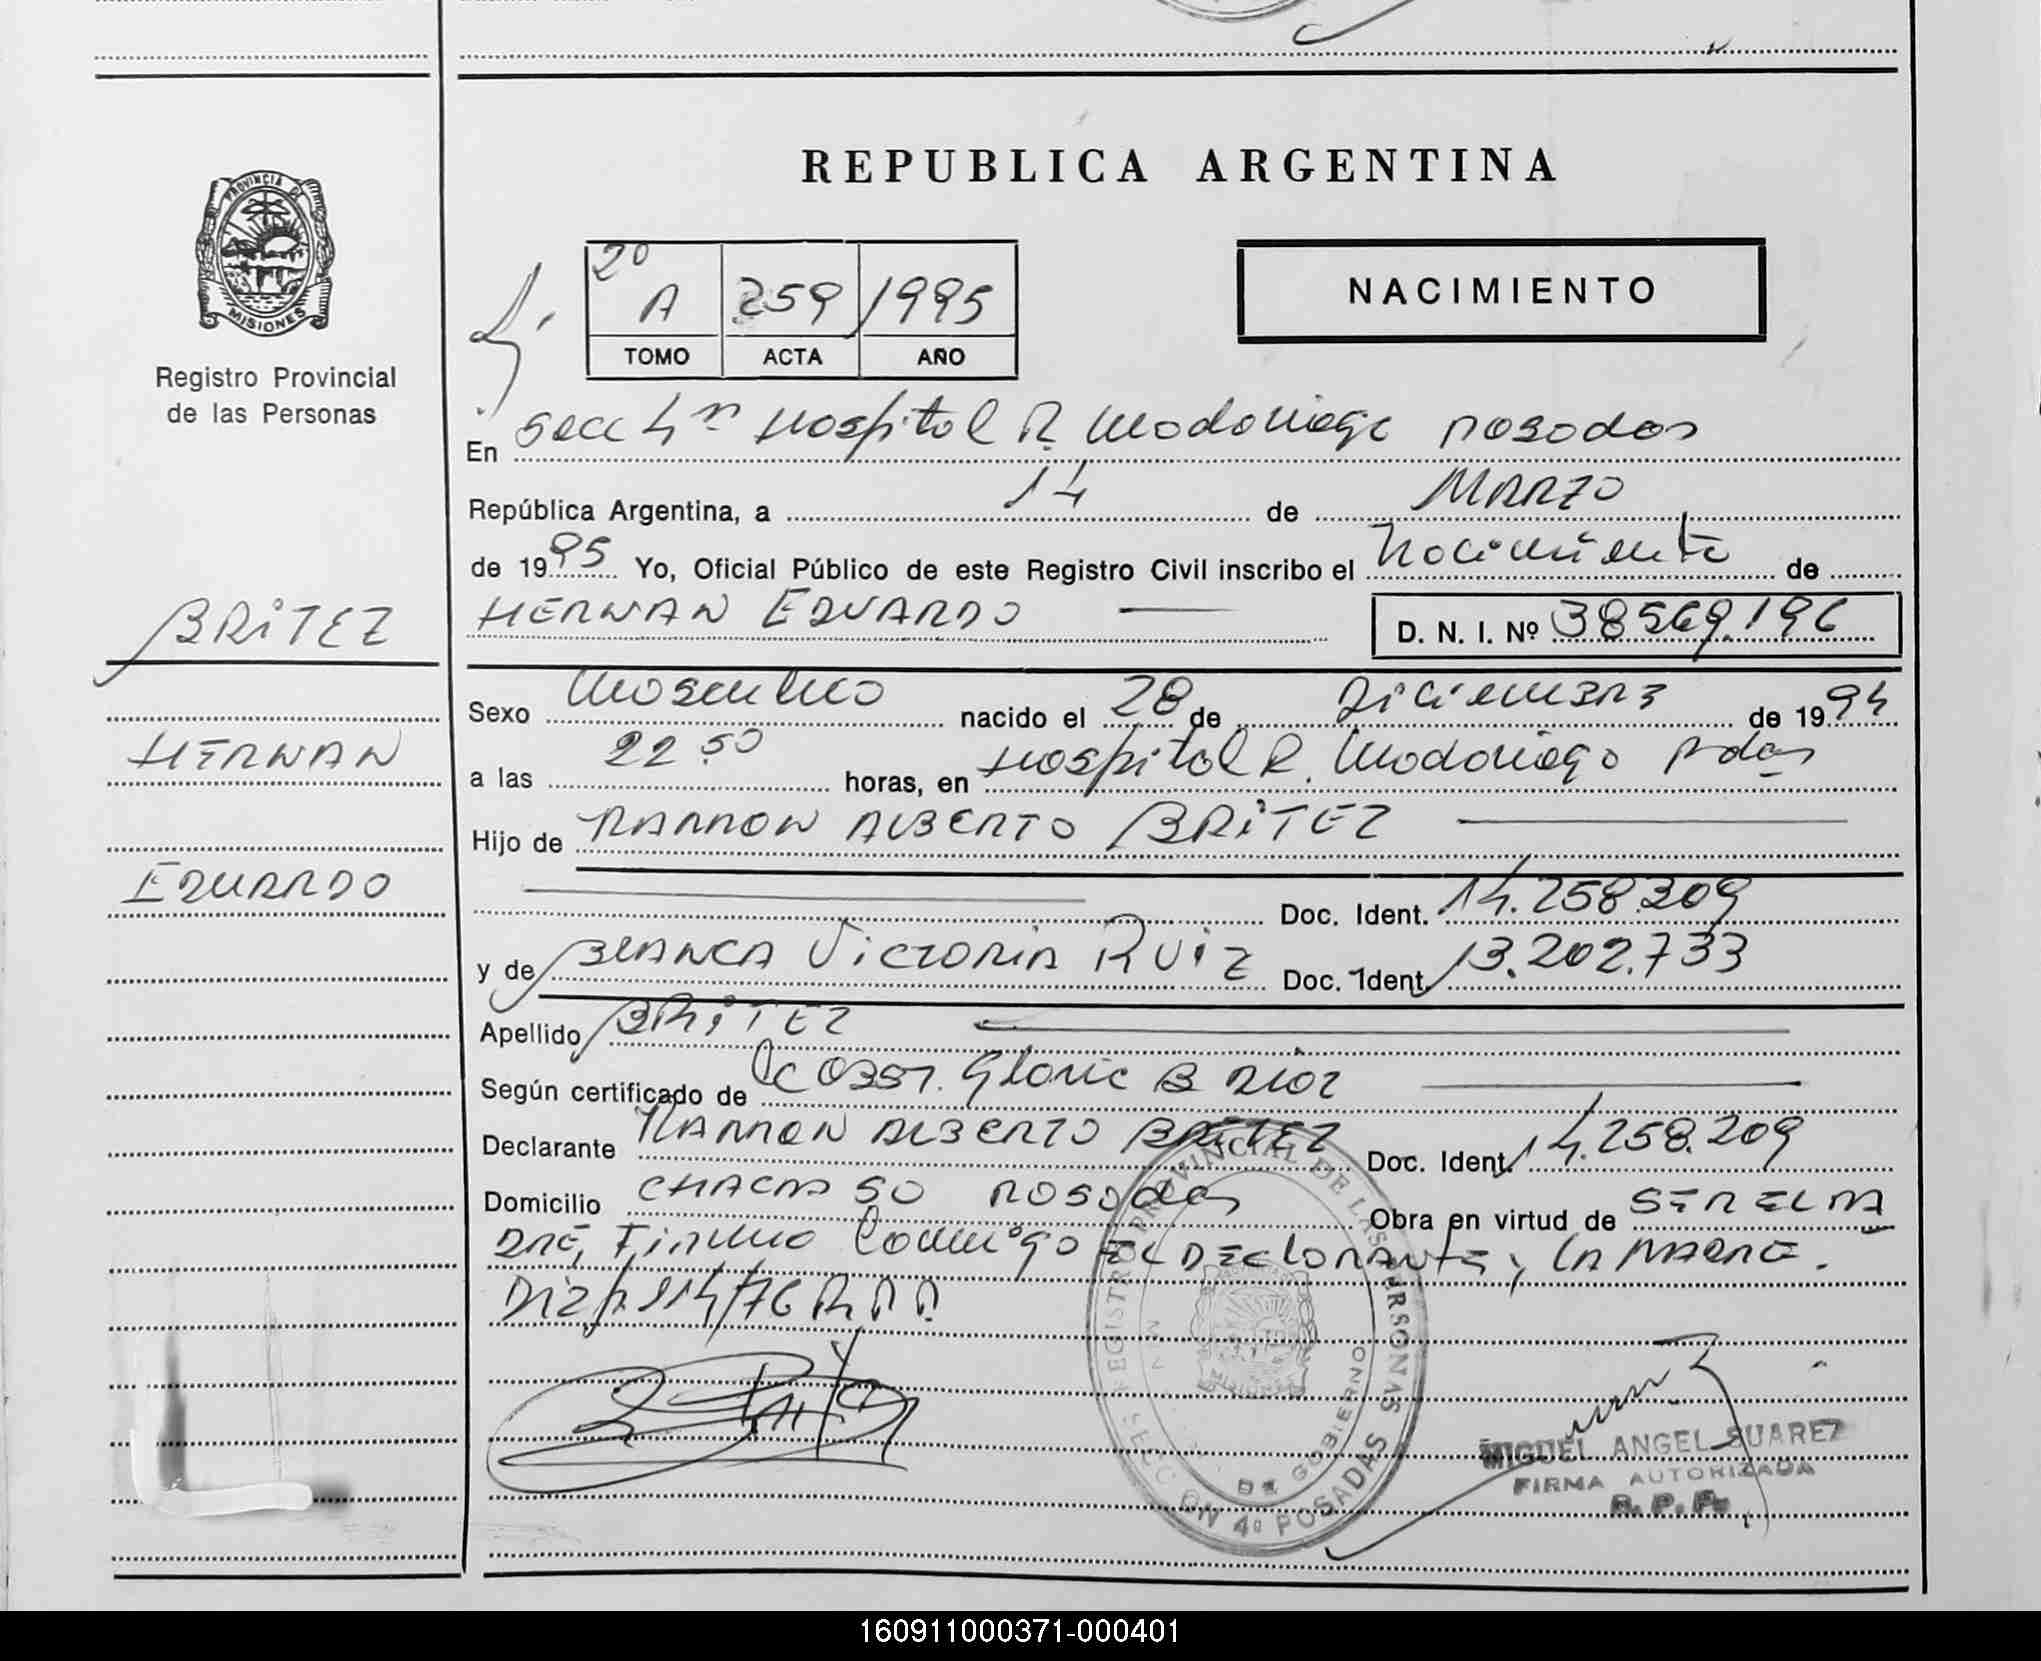 REPUBLICA ARGENTINA
PROVINCIA DE
MISIONES
Registro Provincial
de las Personas
2º
A 259 1995
TOMO ACTA AÑO
NACIMIENTO
En Secc 4ª Hospital R. Madariaga Posadas
República Argentina, a 14 de MARZO
de 1995 Yo, Oficial Público de este Registro Civil inscribo el Nacimiento de
HERNAN EDUARDO
D. N. I. Nº 38569.196
BRITEZ
HERNAN
EDUARDO
Sexo Masculino nacido el 28 de Diciembre de 1994
a las 22 50 horas, en Hospital R. Madariaga Pdas
Hijo de RAMON ALBERTO BRITEZ
Doc. Ident. 14.258.209
y de BLANCA VICTORIA RUIZ Doc. Ident. 13.202.733
Apellido BRITEZ
Según certificado de Obst. Gloria B
Declarante RAMON ALBERTO BRITEZ Doc. Ident. 14.258.209
Domicilio CHACRA 50 POSADAS Obra en virtud de SER EL PA
DRE, Firma Conmigo EL DECLARANTE y LA MADRE.
114/76
REGISTRO PROVINCIAL DE LAS PERSONAS
DE GOBIERNO
SECCION 4º POSADAS
MISIONES
MIGUEL ANGEL SUAREZ
FIRMA AUTORIZADA
R. P. P.
160911000371-000401